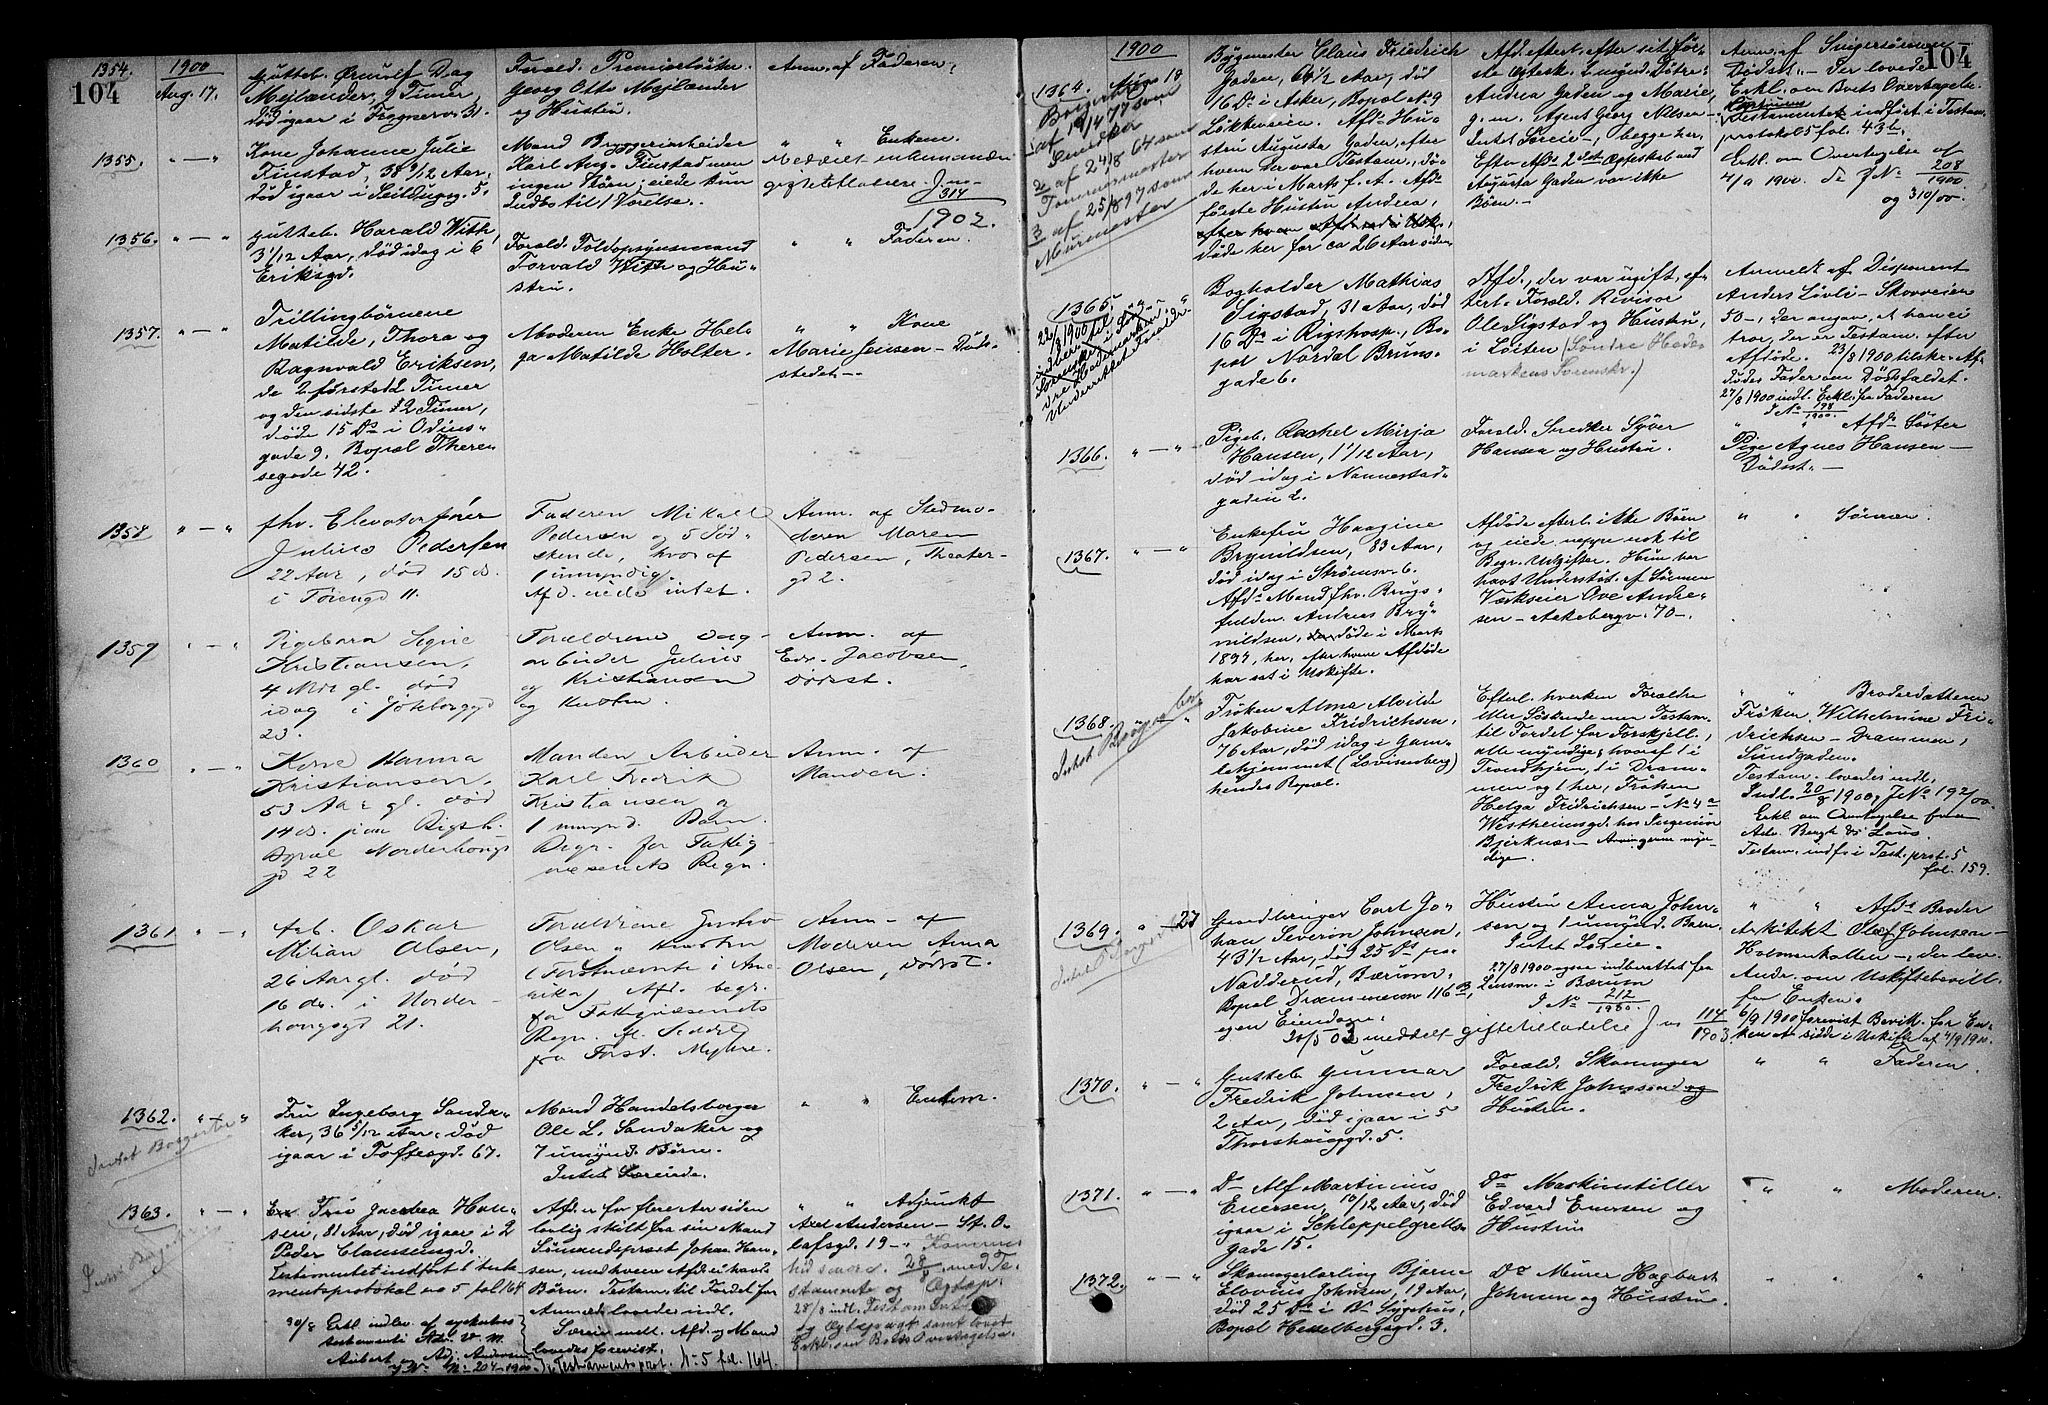 1354.
104
1900
Aug. 17.
Gutteb. Ørnulf Dag
Mejlænder, 9 Timer,
død igaar i Frognerv. 31.
Foræld. Premierløitn.
Georg Otto Mejlænder
og Hustru.
Anm. af Faderen.
1355.
" — "
Kone Johanne Julie
Finstad, 38 /12 Aar,
død igaar i Seildugsg. 5.
Mand Bryggeriarbeider
Karl Aug. Finstad men
ingen Börn; eiede kun
Indbo til 1 Værelse.
" " Enkem.
Meddelt enkemand
giftetilladelse J. no
314
1902.
1356.
" — "
Gutteb. Harald With,
3 1/12 Aar, död idag i 6
Eriksgd.
Foræld. Toldopsynsmand
Torvald With og Hu-
stru.
" " Faderen.
1357.
" — "
Trillingbörnene
Matilde, Thora og
Ragnvald Eriksen,
de 2 første 2 Timer
og den sidste 12 Timer,
døde 15 Ds i Odins-
gade 9. Bopæl There-
segade 42.
Moderen Enke Hel-
ga Matilde Holter.
" " Kone
Marie Jensen – Døds-
stedet.
1358
" — "
fhv. Elevatorfører
Julius Pedersen
22 Aar, død 15 ds.
i Töiengd 11.
Faderen Mikael
Pedersen og 5 Sød-
skende, hvoraf
1 umyndig.
Afd. eiede intet.
Anm. af Stedmo-
deren Maren
Pedersen, Theater-
gd 2.
1359
" — "
Pigebarn Signe
Kristiansen,
4 Mdr gl. død
idag i Göteborggd
23.
Forældrene Dag-
arbeider Julius
Kristiansen
og Hustru.
Anm. af
Edv. Jacobsen,
Dödsst.
1360
" — "
Kone Hanna
Kristiansen,
53 Aar gl. død
14 ds. paa Rigsh.
Bopæl Nordrehougs-
gd 22
Manden Arbeider
Karl Fredrik
Kristiansen og
1 umynd. Barn.
Begr. for Fattig-
væsenets Regn.
Anm. af
Manden.
1361
" — "
Arb. Oskar
Milian Olsen,
26 Aar gl. død
16 ds. i Norder-
hougsgd 21.
Forældrene Gustav
Olsen og Hustru
(Førstnævnte i Ame-
rika) Afd. begr.
for Fattigvæsenets
Regn. fl. Seddel
fra Forst. Myhre.
Anm. af
Moderen Anna
Olsen, Dödst.
1362.
" — "
Intet Borgerbr
Fru Ingeborg Sanda-
ker, 36 5/12 Aar, död
igaar i Toftesgd. 67.
Mand Handelsborger
Ole L. Sandaker og
7 umynd. Börn.
Intet Særeie.
" " Enkem.
1363.
" — "
Fru Jacobea Han-
sen, 81 Aar, død igaar i 2
Peder Claussensgd.
Testamentet indført i testa-
mentsprotokol no 5 fol 164
30/8 Erkl. indlev. af
Aubert og Adj. Andersen
J. No 204-1900.
Afd. er for flere Aar siden
lovlig skilt fra sin Mand
Sömandspræst Johan Han-
sen, med hvem Afd. ei havde
Børn. Testam. til Fordel for
Anmeld. lovedes indl.
Særeie mell. Afd. og Mand
lovedes forevist.
Testamentsprot. No 5 fol. 164.
" " Adjunkt
Axel Andersen – St. O-
lafsgd. 19
28/8 med Te-
stamente og Ægtep.
28/8 indl. Testamentet
og Ægtepagt samt lovet
Erkl. om Boets Overtagelse.
1900
104
1364.
Aug. 18
Borgerbr.
1 af 19/4 77 som
Snedker
2 af 24/8 64 som
Tømmermester
3 af 25/8 97 som
Murmester
Bygmester Claus Friedrich
Gaden, 64 1/2 Aar, død
16 Ds i Asker, Bopæl No 9
Løkkeveien. Afds Hu-
stru Augusta Gaden, efter
hvem der var Testam., dø-
de her i Marts f. A. Afds
første Hustru Andrea,
døde her for ca 26 Aar siden.
Afd. efterl. efter sit før-
ste Ægtesk. 2 mynd. Døtre
Andrea Gaden og Marie,
g. m. Agent Georg Nilsen –
Intet Særeie –, begge her.
Efter Afds 2det Ægteskab med
Augusta Gaden var ikke
Börn.
Anm. af Svigersönnen
Dødsst. – Der lovedes
Erkl. om Boets Overtagelse.
Testamentet indført i Testam.
protokol 5 fol. 432.
Erkl. om Overtagelse af
4/9 1900. J. No 208
1900
og 310/00.
1365.
" — "
Bogholder Mathias
Sigstad, 31 Aar, død
16 Ds i Rigshosp., Bo-
pæl Nordal Bruns-
gade 6.
Afd., der var ugift, ef-
terl. Foræld. Revisor
Ole Sigstad og Hustru,
i Løiten (Söndre Hede-
markens Sorenskr.)
Anmeldt af Disponent
Anders Lövli – Skovveien
50 –, der angav, at han ei
tror, der er Testam. efter
Afdøde. 23/8 1900 tilskr. Af-
dødes Fader om Dødsfaldet.
27/8 1900 indl. Erkl. fra Faderen
J No 198
1900.
1366.
" — "
Pigeb. Rachel Mirja
Hansen, 1 1/12 Aar,
död idag i Nannestad-
gaden 2.
Foræld. Snedker Syver
Hansen og Hustru.
" " Afds Søster
Pige Agnes Hansen –
Dødsst. –
1367.
" — "
Enkefru Haagine
Brynildsen, 83 Aar,
död idag i Strömsv. 6.
Afds Mand fhv. Brugs-
fuldm. Andreas Bry-
nildsen, døde i Marts
1897, her, efter hvem Afdøde
har sat i Uskifte.
Afdøde efterl. ikke Børn
og eiede neppe nok til
Begr. Udgifter. Hun har
havt Understøt. af Sönnen
Værkseier Ove Andre-
sen – Akebergv. 70 –.
" " Sönnen.
1368.
" — "
Intet Borgerbr
Fröken Alma Alvilde
Jakobine Fridrichsen,
76 Aar, død idag i Gam-
lehjemmet (Lovisenberg)
hendes Bopæl.
Efterl. hverken Forældre
eller Söskende men Testam.
til Fordel for Forskjell.,
alle myndige, hvoraf 1 i
Trondhjem, 1 i Dram-
men og 1 her, Fröken
Helga Fridrichsen – No 4 a
Westheimsgd. hos Ingeniør
Bjerknæs – Arvingerne myn-
dige.
" " Broderdatteren
Fröken Wilhelmine Fri-
drichsen – Drammen,
Sundgaden.
Testam. lovedes indl.
Indl. 20/8 1900, J No 192/00.
Erkl. om Overtagelse fra
Adv. Bergh ds Lous.
Testam. indf. i Test. prot. 5
fol. 159.
1369.
" 27
Grundbruger Carl Jo-
han Severin Johnsen,
43 1/2 Aar, død 25 Ds paa
Nadderud, Bærum.
Bopæl Drammensv. 116 B,
egen Eiendom.
30/5 03 meddelt giftetilladelse J no 114
1903
Hustru Anna John-
sen og 1 umynd. Barn.
Intet Særeie.
27/8 1900 ogsaa indberettet fra
Lensm. i Bærum
J No 212
1900.
" " Afds Broder
Arkitekt Olaf Johnsen –
Holmenkollen –, der lov.
Andr. om Uskiftebevill.
for Enken.
6/9 1900 forevist Bevill. for En-
ken at sidde i Uskifte af 4/9 1900.
1370.
" — "
Gutteb. Gunnar
Fredrik Johnsen,
2 Aar, död igaar i 5
Thorshaugsgd. 5.
Foræld. Skomager
Fredrik Johnsen og
Hustru.
" " Faderen.
1371.
" — "
Do Alf Martinius
Enersen, 10/12 Aar, död
igaar i Schleppegrells-
gade 15.
Do Maskinstiller
Edvard Enersen og
Hustru
" " Moderen.
1372.
" — "
Skomagerlærling Bjarne
Elovius Johnsen, 19 Aar,
død 25 Ds i Kr. Sygehus,
Bopæl Hesselbergsgd. 3.
Do Murer Hagbart
Johnsen og Hustru.
" " "